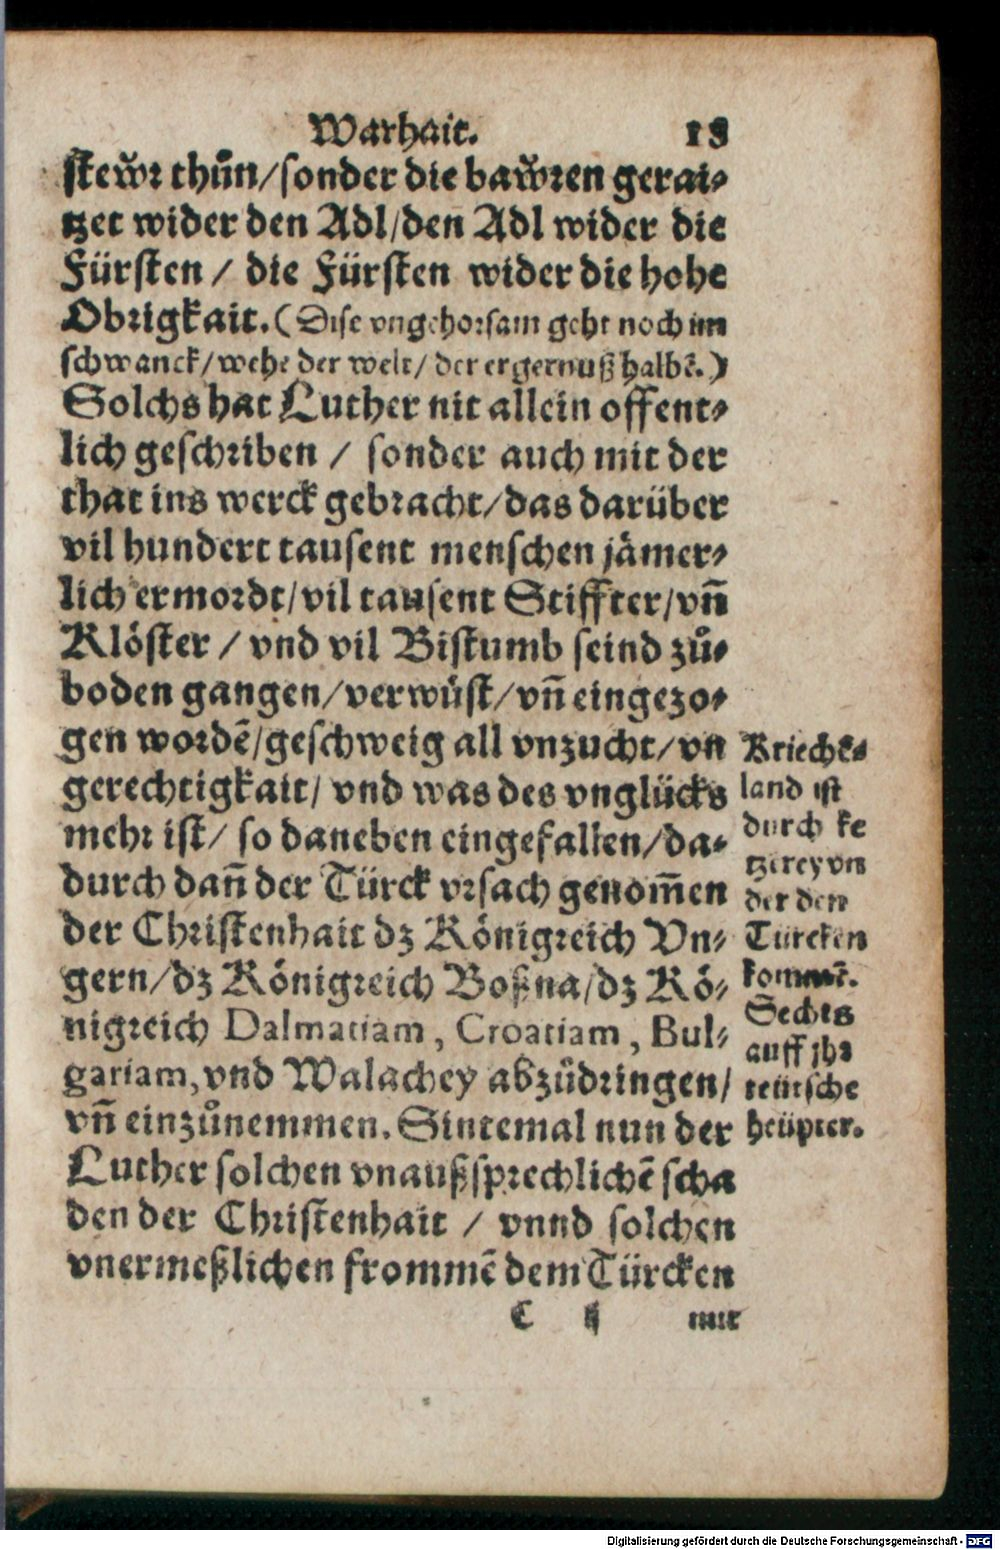 Warhait. 18
stewͦr thuͦn/sonder die bawͦren gerai-
tzet wider den Adl/den Adl wider die
Fürsten / die Fürsten wider die hohe
Obrigkait. (Dise vngehorsam geht noch im
schwanck/wehe der welt/ der ergernuß halbē.)
Solchs hat Luther nit allein offent-
lich geschriben / sonder auch mit der
that ins werck gebracht/das darüber
vil hundert tausent menschen jämer-
lich ermordt/vil tausent Stiffter/vn̄
Klöster / vnd vil Bistumb seind zuͦ-
boden gangen/verwüst/vn̄ eingezo-
gen wordē/geschweig all vnzucht/vn
gerechtigkait/ vnd was des vnglücks
mehr ist/ so daneben eingefallen/da-
durch dan̄ der Türck vrsach genom̄en
der Christenhait dz Königreich Vn-
gern/dz Königreich Boßna/dz Kö-
nigreich Dalmatiam, Croatiam, Bul-
gariam, vnd Walachey abzuͦdringen/
vn̄ einzuͦnemmen. Sintemal nun der
Luther solchen vnaußsprechlichē scha
den der Christenhait / vnnd solchen
vnermeßlichen frommē dem Türcken
C ij mit
Kriechē-
land ist
durch ke
tzerey vn
der den
Türcken
kommē.
Sechts
auff jhr
teütsche
heüpter.
Digitalisierung gefördert durch die Deutsche Forschungsgemeinschaft - DFG